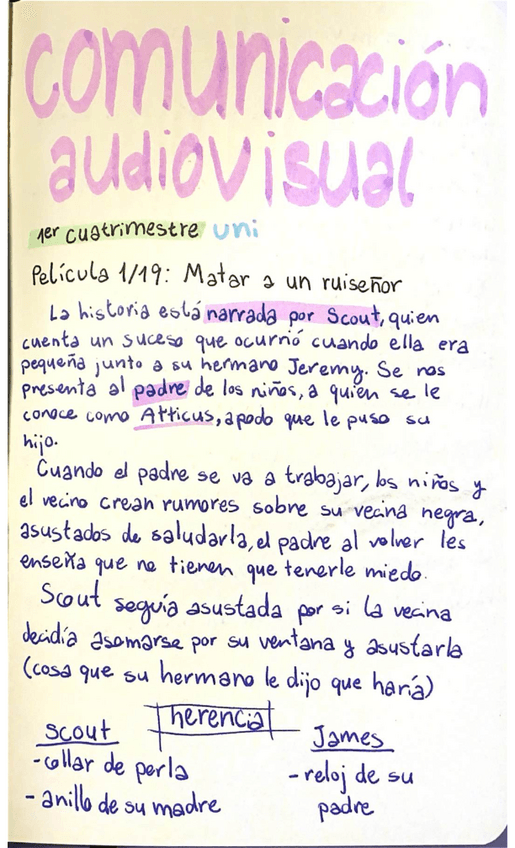 comunicación
audiovisual
1er cuatrimestre uni
Película 1/19: Matar a un ruiseñor
La historia está narrada por Scout, quien
cuenta un suceso que ocurrió cuando ella era
pequeña junto a su hermano Jeremy. Se nos
presenta al padre de los niños, a quien se le
conoce como Atticus, apodo que le puso su
hijo.
Cuando el padre se va a trabajar, los niños y
el vecino crean rumores sobre su vecina negra,
asustados de saludarla, el padre al volver les
enseña que no tienen que tenerle miedo.
Scout seguía asustada por si la vecina
decidía asomarse por su ventana y asustarla
(cosa que su hermano le dijo que haría)
herencia
scout
-collar de perla
-anillo de su madre
James
-reloj de su
padre